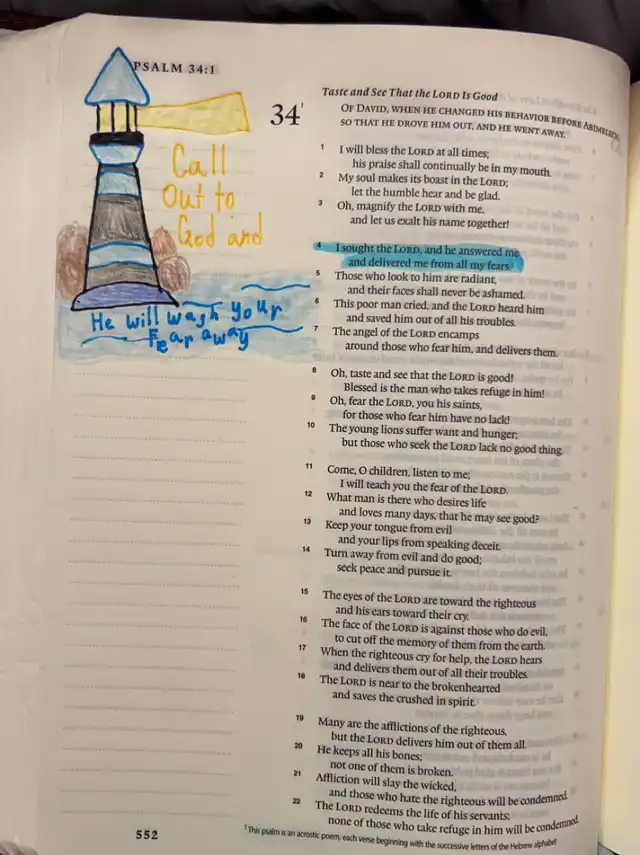 PSALM 34:1
Call
Out to
God and
He will wash your
Fear away
Taste and See That the LORD Is Good
34¹
OF DAVID, WHEN HE CHANGED HIS BEHAVIOR BEFORE ABIMELECH,
SO THAT HE DROVE HIM OUT, AND HE WENT AWAY.
1 I will bless the LORD at all times;
his praise shall continually be in my mouth.
2 My soul makes its boast in the LORD;
let the humble hear and be glad.
3 Oh, magnify the LORD with me,
and let us exalt his name together!
4 I sought the LORD, and he answered me
and delivered me from all my fears.
5 Those who look to him are radiant,
and their faces shall never be ashamed.
6 This poor man cried, and the LORD heard him
and saved him out of all his troubles.
7 The angel of the LORD encamps
around those who fear him, and delivers them.
8 Oh, taste and see that the LORD is good!
Blessed is the man who takes refuge in him!
9 Oh, fear the LORD, you his saints,
for those who fear him have no lack!
10 The young lions suffer want and hunger;
but those who seek the LORD lack no good thing.
11 Come, O children, listen to me;
I will teach you the fear of the LORD.
12 What man is there who desires life
and loves many days, that he may see good?
13 Keep your tongue from evil
and your lips from speaking deceit.
14 Turn away from evil and do good;
seek peace and pursue it.
15 The eyes of the LORD are toward the righteous
and his ears toward their cry.
16 The face of the LORD is against those who do evil,
to cut off the memory of them from the earth.
17 When the righteous cry for help, the LORD hears
and delivers them out of all their troubles.
18 The LORD is near to the brokenhearted
and saves the crushed in spirit.
19 Many are the afflictions of the righteous,
but the LORD delivers him out of them all.
20 He keeps all his bones;
not one of them is broken.
21 Affliction will slay the wicked,
and those who hate the righteous will be condemned.
22 The LORD redeems the life of his servants;
none of those who take refuge in him will be condemned.
552
¹ This psalm is an acrostic poem, each verse beginning with the successive letters of the Hebrew alphabet